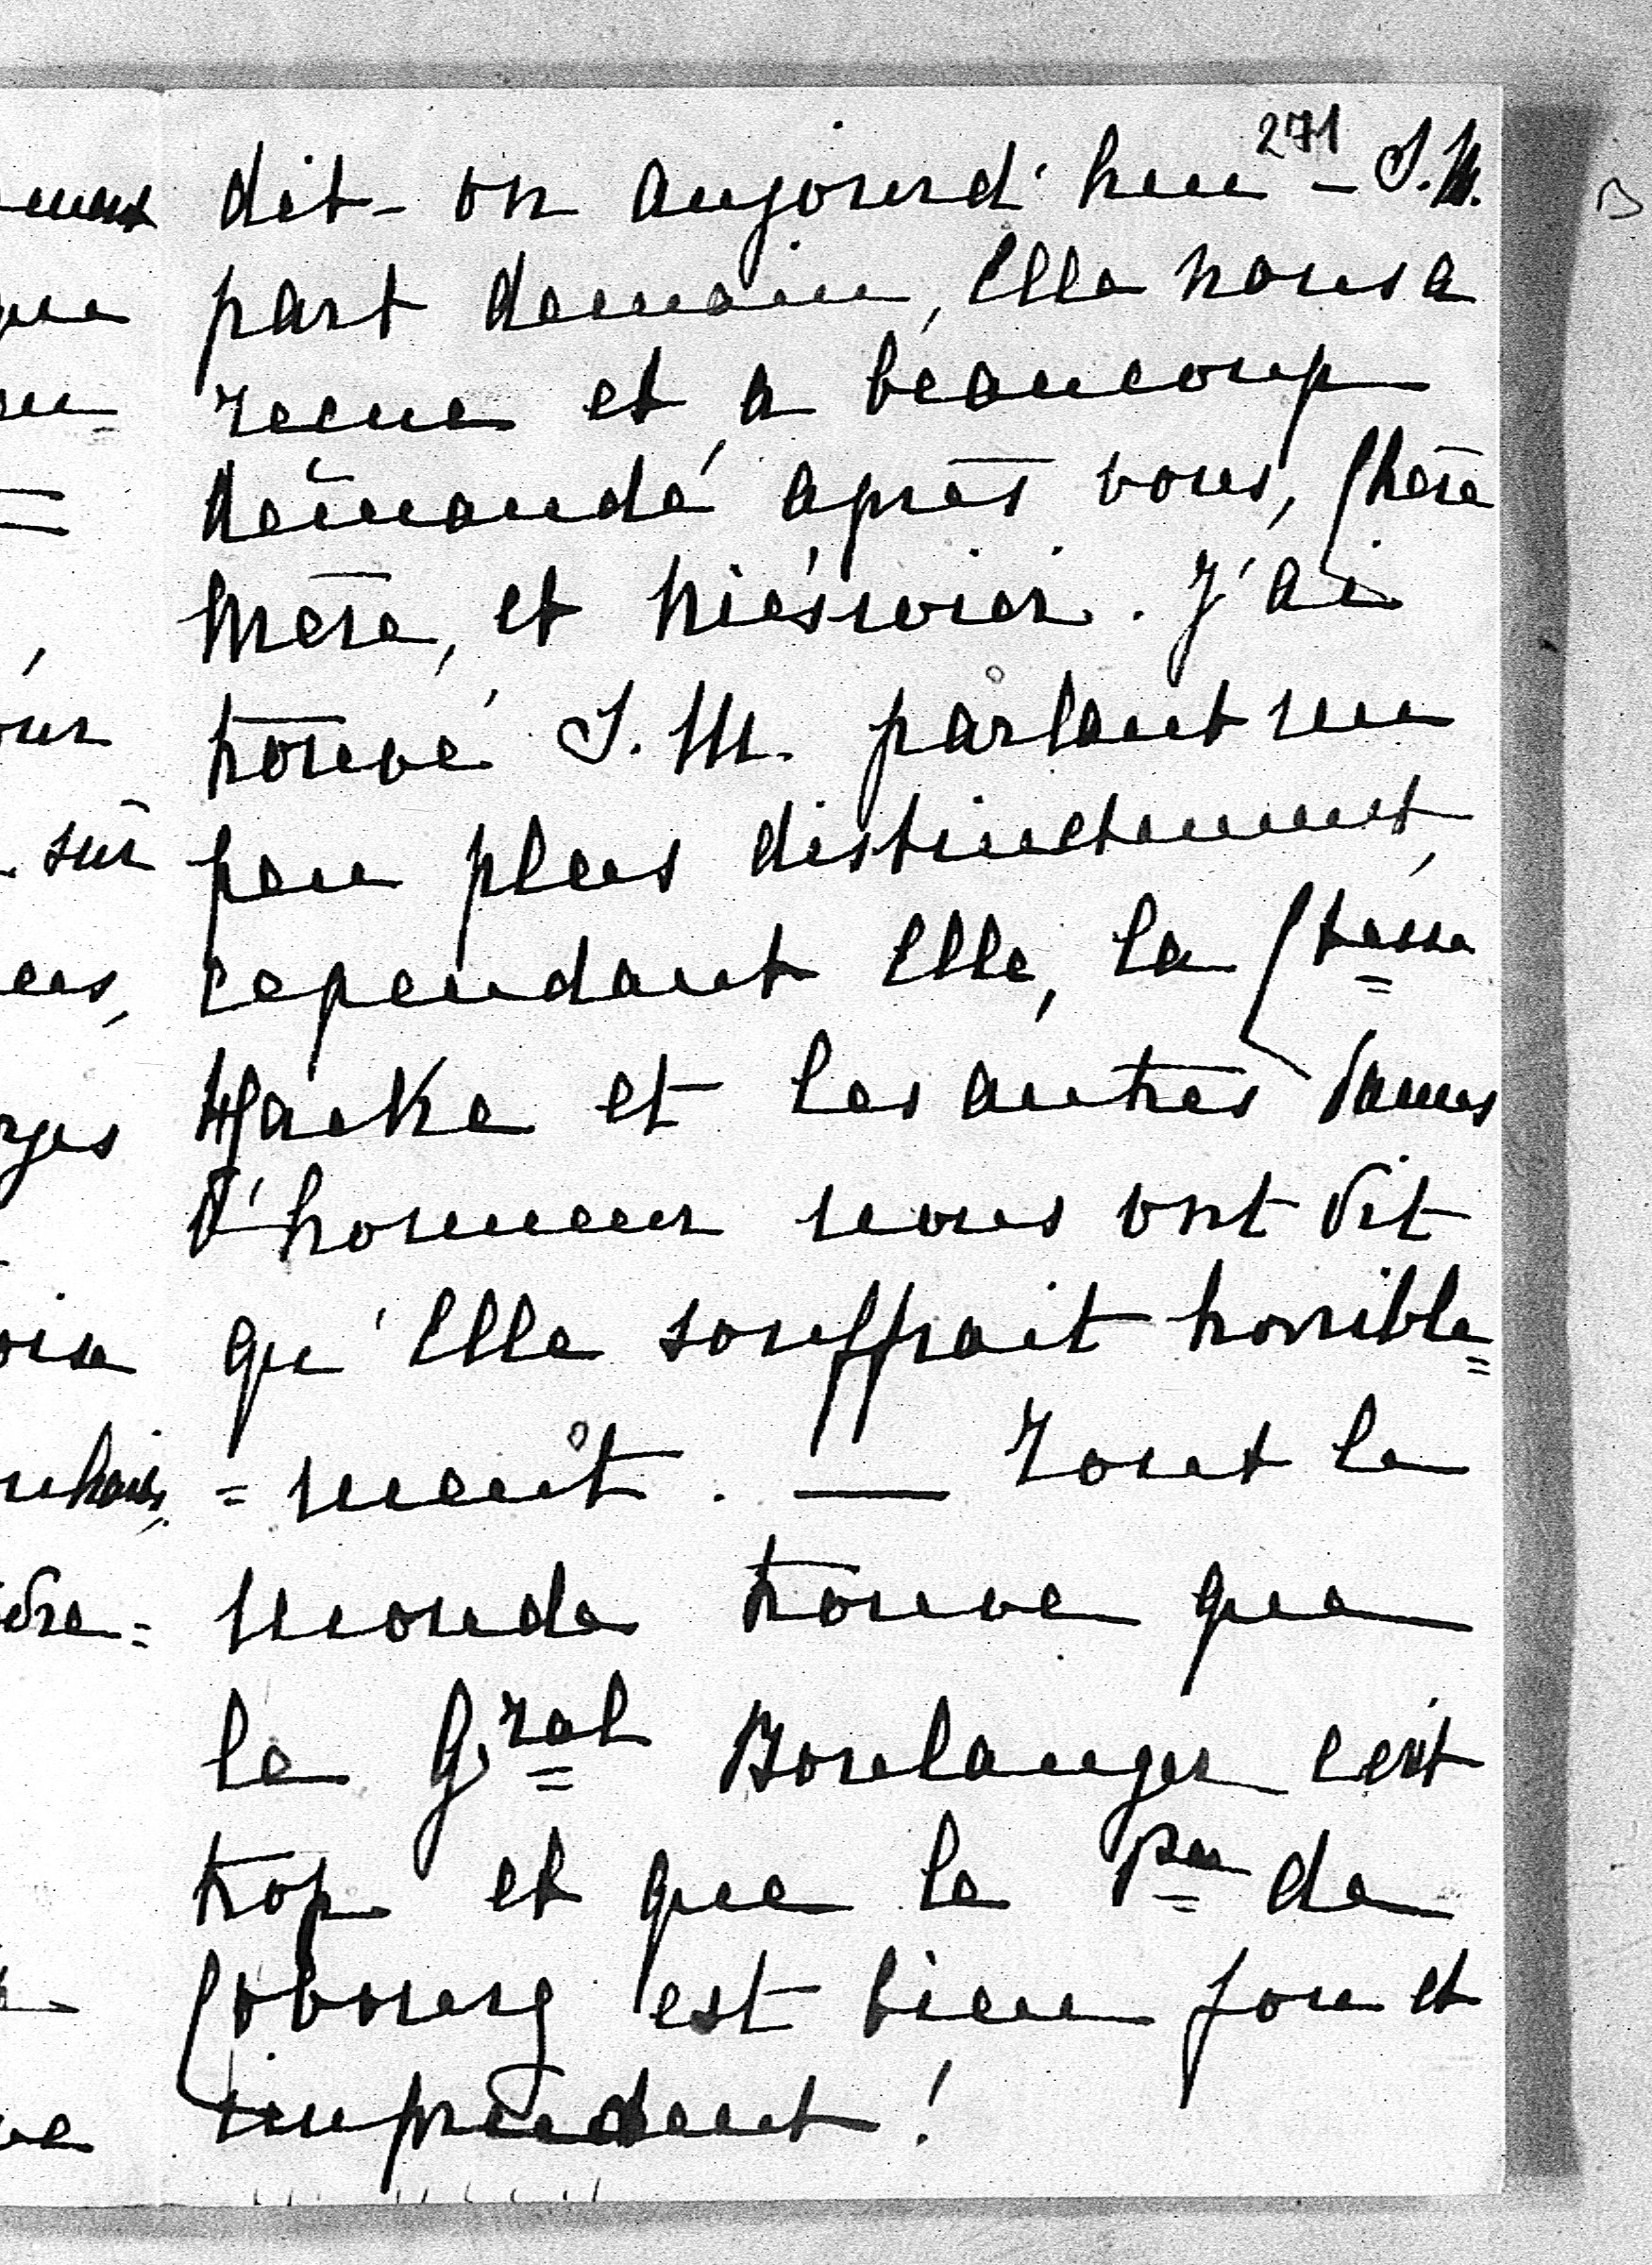 271
dit-on aujourd'hui - S.M.
part demain, Elle nous a
reçue et a beaucoup
demandé après vous, Chère
Mère, et Miésroier. J'ai
trouvé S.M. parlant un
peu plus distinctement,
cependant Elle, la Ctesse
Hacke et les autres Dames
d'honneur nous ont dit
qu'Elle souffrait horrible=
=ment. — Tout le
monde trouve que
le Gral Boulanger écrit
trop et que le Pce de
Cobourg est bien fou et
imprudent!
sur